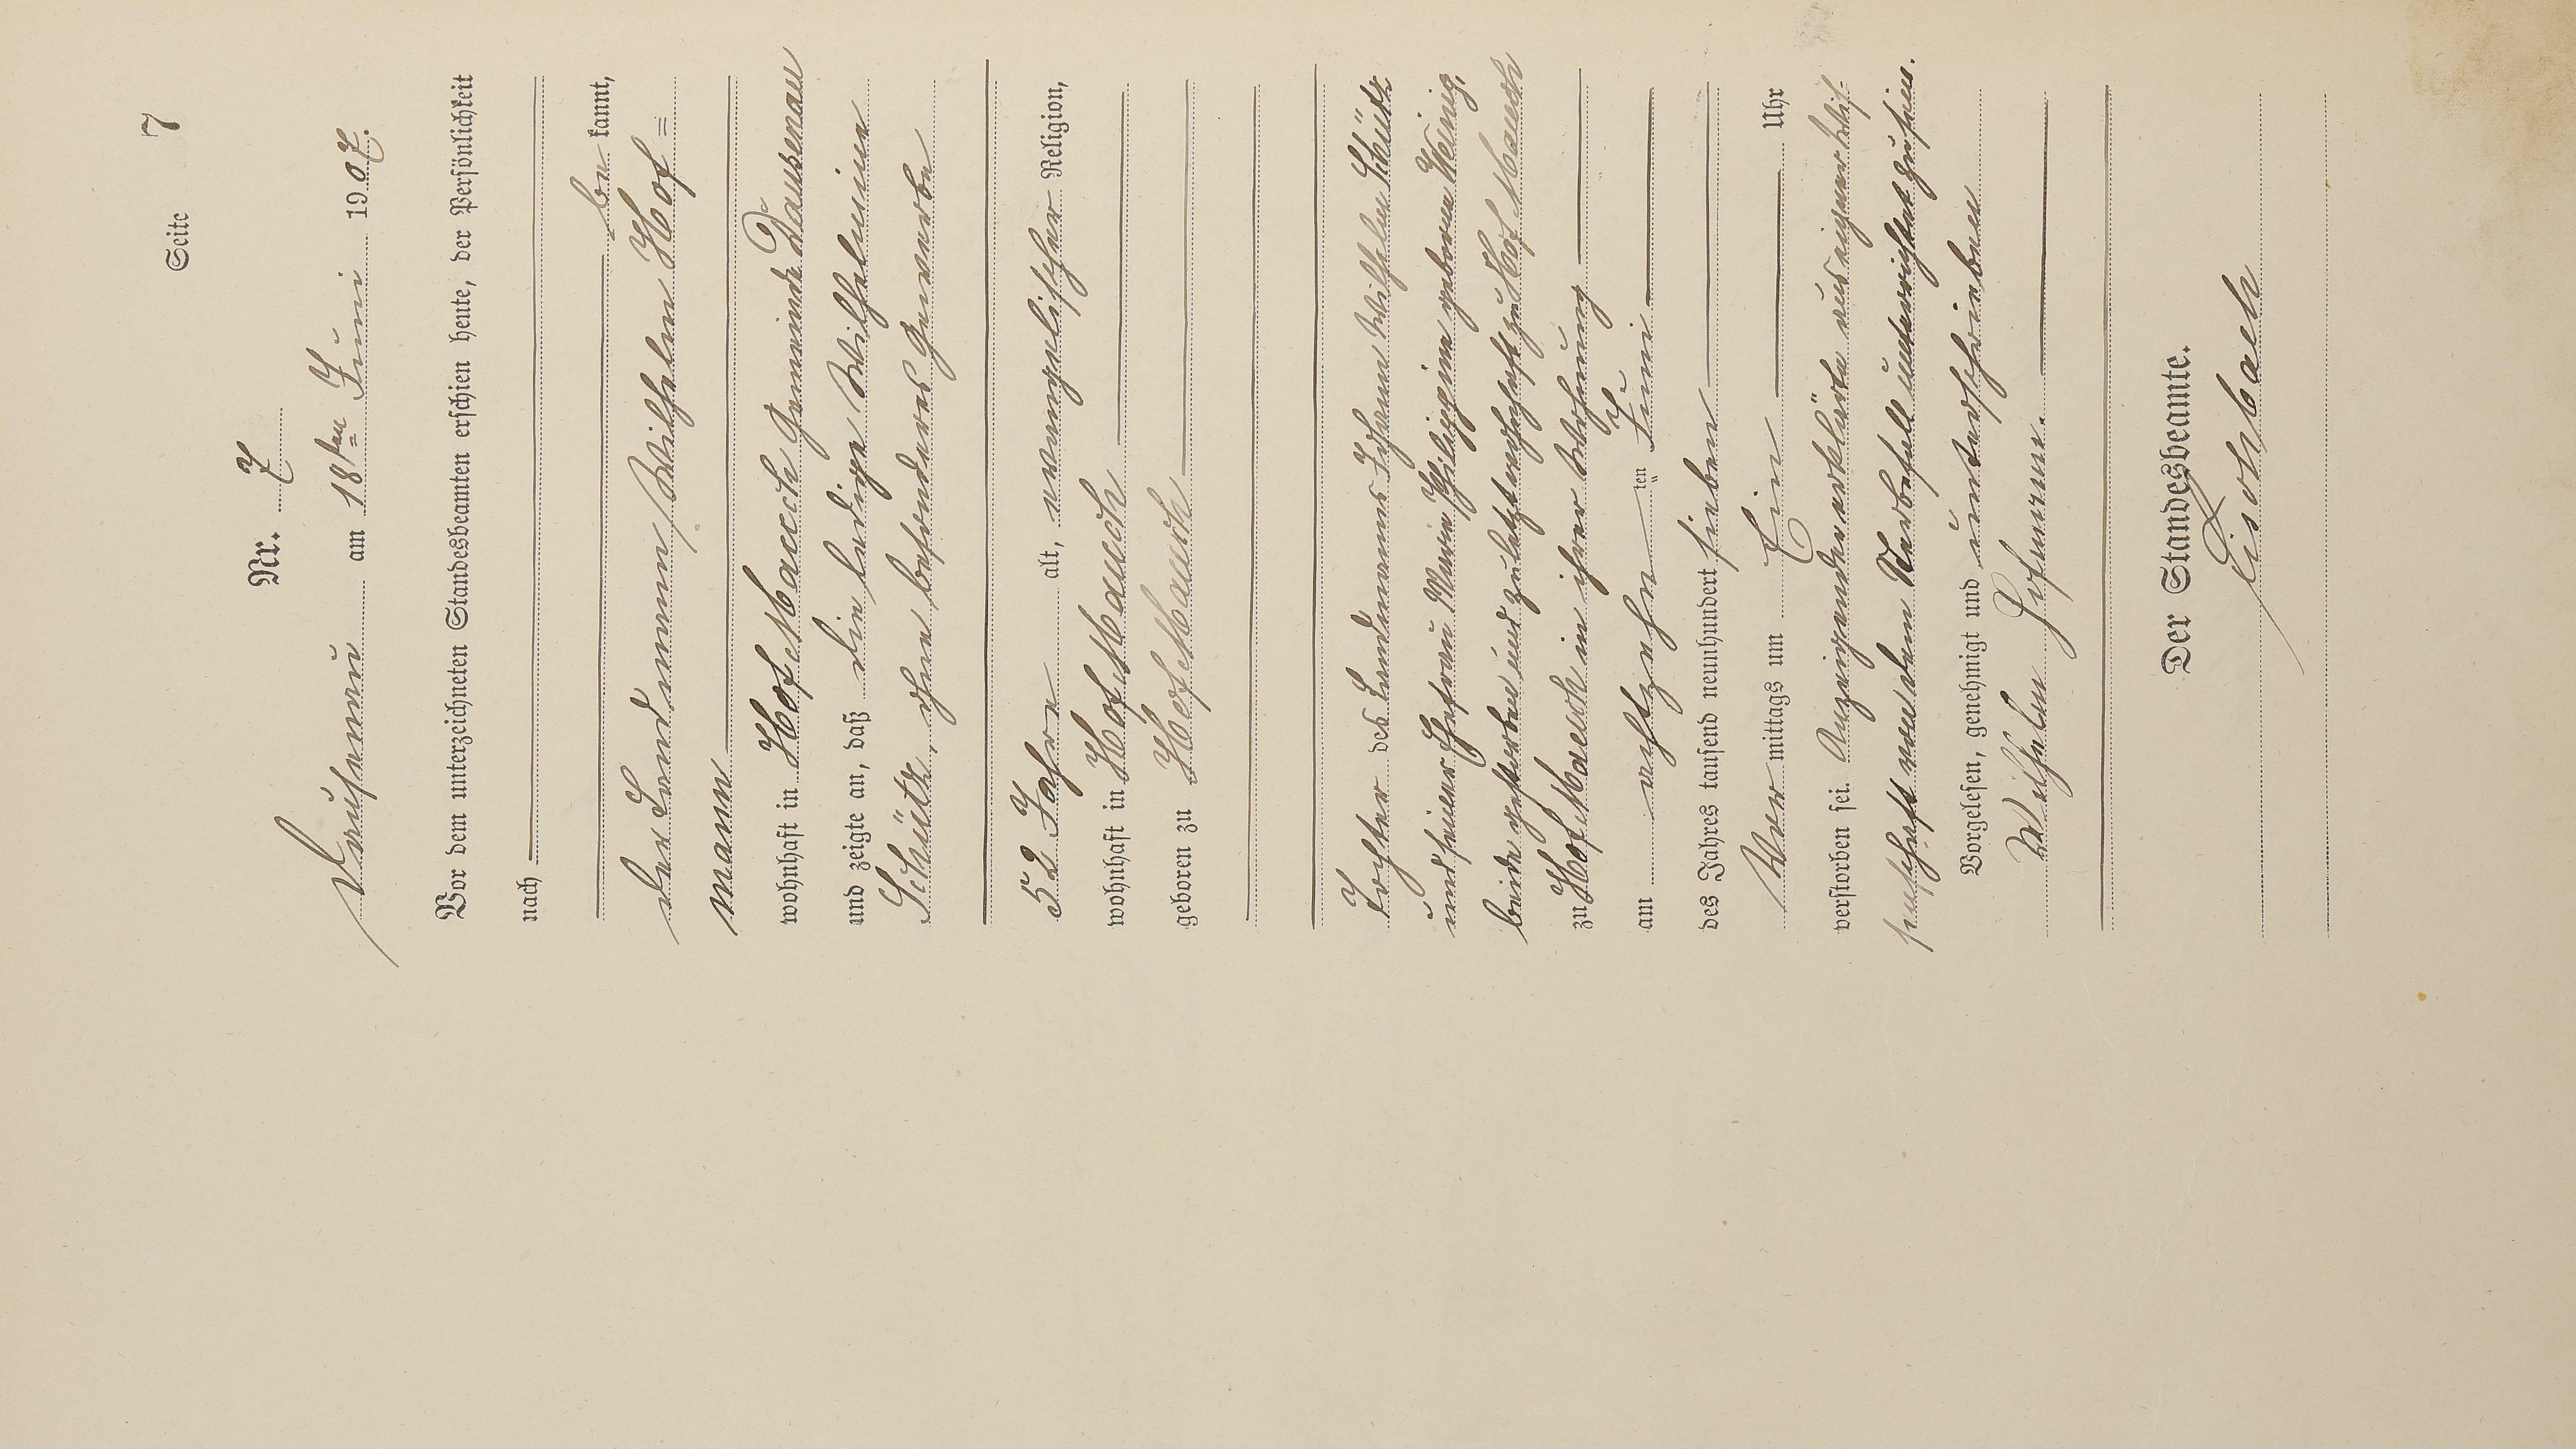 Seite 7
Nr. 7
Dausenau am 18ten Juni 1907.
Vor dem unterzeichneten Standesbeamten erschien heute, der Persönlichkeit
nach
be kannt,
der Landmann Wilhelm Hof=
mann
wohnhaft in Hof Mauch Gemeinde Dausenau
und zeigte an, daß die ledige Wilhelmine
Schütz, ohne besonderes Gewerbe
52 Jahre alt, evangelischer Religion,
wohnhaft in Hof Mauch
geboren zu Hof Mauch
Tochter des Landmanns Johann Wilhelm Schütz
und seiner Ehefrau Maria Philippine geborene
beide gestorben und zuletzt wohnhaft zu Hof Mauch
zu Hof Mauch in ihrer Wohnung
am achtzehn ten Juni
des Jahres tausend neunhundert sieben
Vor mittags um Ein Uhr
verstorben sei. Anzeigender erklärte aus eigener Wis=
senschaft von dem Sterbefall unterrichtet zu sein.
Vorgelesen, genehmigt und unterschrieben
Wilhelm Hofmann.
Der Standesbeamte.
Fischbach